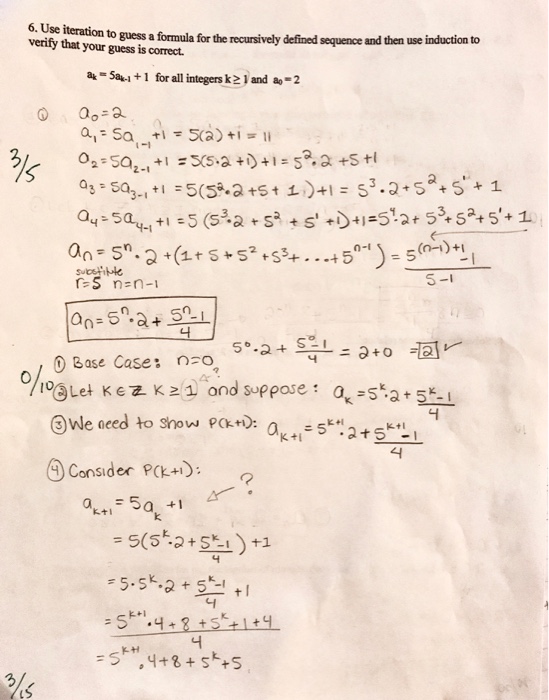 6. Use iteration to guess a formula for the recursively defined sequence and then use induction to
verify that your guess is correct.
aₖ = 5aₖ₋₁ + 1 for all integers k ≥ 1 and a₀ = 2
① a₀=2
a₁ = 5a₁₋₁+1 = 5(2)+1 = 11
3/5
a₂=5a₂₋₁+1 = 5(5·2+1)+1 = 5²·2+5+1
a₃=5a₃₋₁+1 = 5(5²·2+5+1)+1 = 5³·2+5²+5¹+1
a₄=5a₄₋₁+1 = 5(5³·2+5²+5¹+1)+1=5⁴·2+5³+5²+5¹+1
aₙ=5ⁿ·2+(1+5+5²+5³+...+5ⁿ⁻¹) = 5⁽ⁿ⁻¹⁾⁺¹-1 / 5-1
substitute
r=5 n=n-1
aₙ=5ⁿ·2+ (5ⁿ-1)/4
① Base Case: n=0 5⁰·2+ (5⁰-1)/4 = 2+0 =2 ✓
?
0/10
② Let K∈ℤ K≥1 and suppose: aₖ=5ᵏ·2+ (5ᵏ-1)/4
③ We need to show P(k+1): aₖ₊₁=5ᵏ⁺¹·2+ (5ᵏ⁺¹-1)/4
④ Consider P(k+1):
?
aₖ₊₁=5aₖ+1
=5(5ᵏ·2+ (5ᵏ-1)/4)+1
=5·5ᵏ·2+ (5ᵏ-1)/4 +1
= (5ᵏ⁺¹·4+8+5ᵏ+1+4)/4
=5ᵏ⁺¹·4+8+5ᵏ+5
3/15